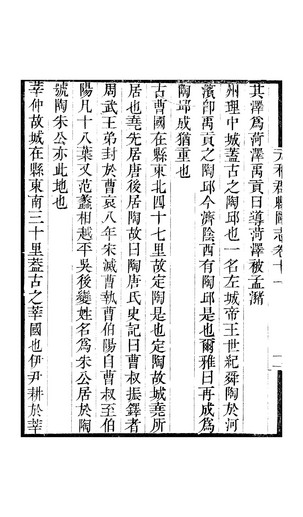 其澤爲菏澤禹貢曰導菏澤被孟瀦
州理中城蓋古之陶邱也一名左城帝王世紀舜陶於河
濱卽禹貢之陶邱今濟陰西有陶邱是也爾雅曰再成爲
陶邱成猶重也
古曹國在縣東北四十七里故定陶是也定陶故城堯所
居也堯先居唐後居陶故曰陶唐氏史記曰曹叔振鐸者
周武王弟封於曹哀八年宋滅曹執曹伯陽自曹叔至伯
陽凡十八葉又范蠡相越平吳後變姓名爲朱公居於陶
號陶朱公亦此地也
莘仲故城在縣東南三十里蓋古之莘國也伊尹耕於莘
元和郡縣圖志卷十一